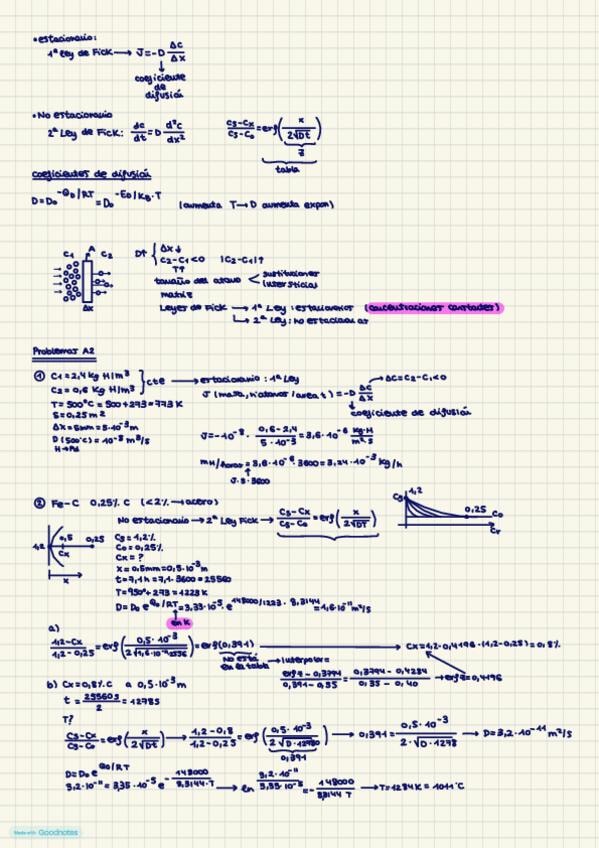 • estacionario:
1ª Ley de Fick → J = -D ΔC/ΔX
coeficiente
de
difusión
• No estacionario
2ª Ley de Fick: dc/dt = D d²c/dx²
Cs-Cx/Cs-Co = erf(x/2√Dt)
z
tabla
coeficientes de difusión
D = Do^-QD/RT = Do^-ED/KB·T (aumenta T → D aumenta expon)
C1 A C2
Δx
D↑ { Δx↓
C2-C1<0 |C2-C1|↑
T↑
tamaño del átomo < sustitucional
intersticial
matriz
Leyes de Fick → 1ª Ley: estacionario (concentraciones constantes)
↳ 2ª Ley: no estacionario
Problemas A2
① C1 = 2,4 Kg H/m³
C2 = 0,6 Kg H/m³ } cte → estacionario: 1ª Ley
→ ΔC = C2-C1<0
T = 500°C = 500+273 = 773 K
J (masa, nºátomos/área t) = -D ΔC/ΔX
S = 0,25 m²
coeficiente de difusión
Δx = 5mm = 5·10⁻³ m
D (500°C) = 10⁻⁸ m²/s
H → Pd
J = -10⁻⁸ · 0,6-2,4/5·10⁻³ = 3,6·10⁻⁶ Kg·H/m²s
mH/horas = 3,6·10⁻⁶ · 3600 = 3,24·10⁻³ Kg/h
J·S·3600
② Fe-C 0,25% C (<2% → acero)
No estacionario → 2ª Ley Fick → Cs-Cx/Cs-Co = erf(x/2√DT)
Cs 1,2
0,25 Co
Cr
1,2 0,5 0,25
Cx
x
Cs = 1,2%
Co = 0,25%
Cx = ?
x = 0,5mm = 0,5·10⁻³ m
t = 7,1h = 7,1·3600 = 25560
T = 950° + 273 = 1223 K
D = Do e^QD/RT = 3,35·10⁻⁵ · e^148000/1223·8,3144 = 1,6·10⁻¹¹ m²/s
en K
a)
1,2-Cx/1,2-0,25 = erf(0,5·10⁻³/2√1,6·10⁻¹¹·2556) = erf(0,391) → Cx = 1,2·0,4196·(1,2-0,25) = 0,8%
No está
en la tabla
→ Interpolar
erf z - 0,3794/0,391 - 0,35 = 0,3794-0,4284/0,35-0,40 → erf z = 0,4196
b) Cx = 0,8% C a 0,5·10⁻³ m
t = 25560s/2 = 12785
T?
Cs-Cx/Cs-Co = erf(x/2√Dt) → 1,2-0,8/1,2-0,25 = erf(0,5·10⁻³/2√D·12780) → 0,391 = 0,5·10⁻³/2·√D·1278 → D = 3,2·10⁻¹¹ m²/s
0,391
D = Do e^QD/RT
3,2·10⁻¹¹ = 3,35·10⁻⁵ e^-148000/8,3144·T → ln 3,2·10⁻¹¹/3,35·10⁻⁵ = -148000/8,3144 T → T = 1284 K = 1011°C
Made with Goodnotes